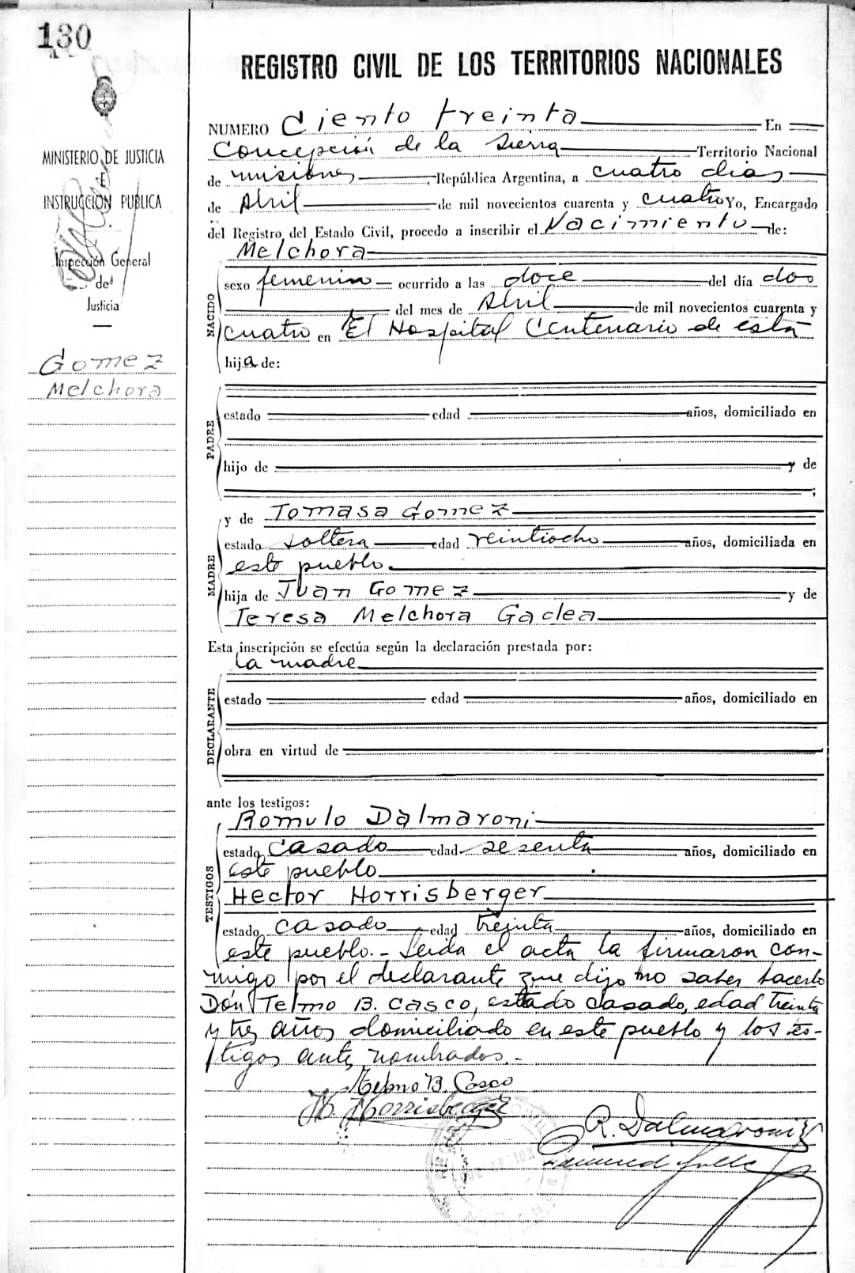 130
MINISTERIO DE JUSTICIA
E
INSTRUCCION PUBLICA
Inspección General
de
Justicia
Gomez
Melchora
REGISTRO CIVIL DE LOS TERRITORIOS NACIONALES
NUMERO Ciento treinta En
Concepción de la Sierra Territorio Nacional
de misiones República Argentina, a cuatro dias
de Abril de mil novecientos cuarenta y cuatro Yo, Encargado
del Registro del Estado Civil, procedo a inscribir el Nacimiento de:
Melchora
NACIDO
sexo femenin ocurrido a las doce del día dos
del mes de Abril de mil novecientos cuarenta y
cuatro en El Hospital Centenario de esta
hija de:
PADRE
estado edad años, domiciliado en
hijo de y de
;
y de Tomasa Gomez
MADRE
estado soltera edad veintiocho años, domiciliada en
este pueblo.
hija de Juan Gomez y de
Teresa Melchora Gadea
Esta inscripción se efectúa según la declaración prestada por:
la madre
DECLARANTE
estado edad años, domiciliado en
obra en virtud de
ante los testigos:
TESTIGOS
Romulo Dalmaroni
estado casado edad sesenta años, domiciliado en
este pueblo
Hector Horrisberger
estado casado edad treinta años, domiciliado en
este pueblo.- Leida el acta la firmaron con-
migo por el declarante que dijo no saber hacerlo
Don Telmo B. Casco, estado casado, edad treinta
y tres años domiciliado en este pueblo y los tes-
tigos antes nombrados.-
Telmo B. Casco
H. Horrisberger
R. Dalmaroni